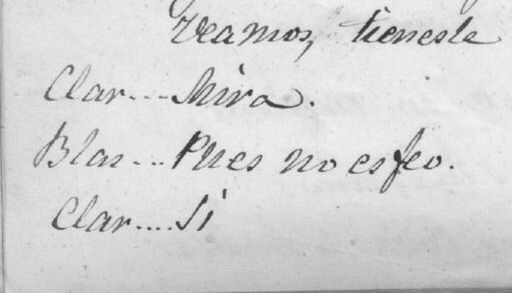 Veamos, tienesle
Clar....Mira.
Blas...Pues no es feo.
Clar....Si